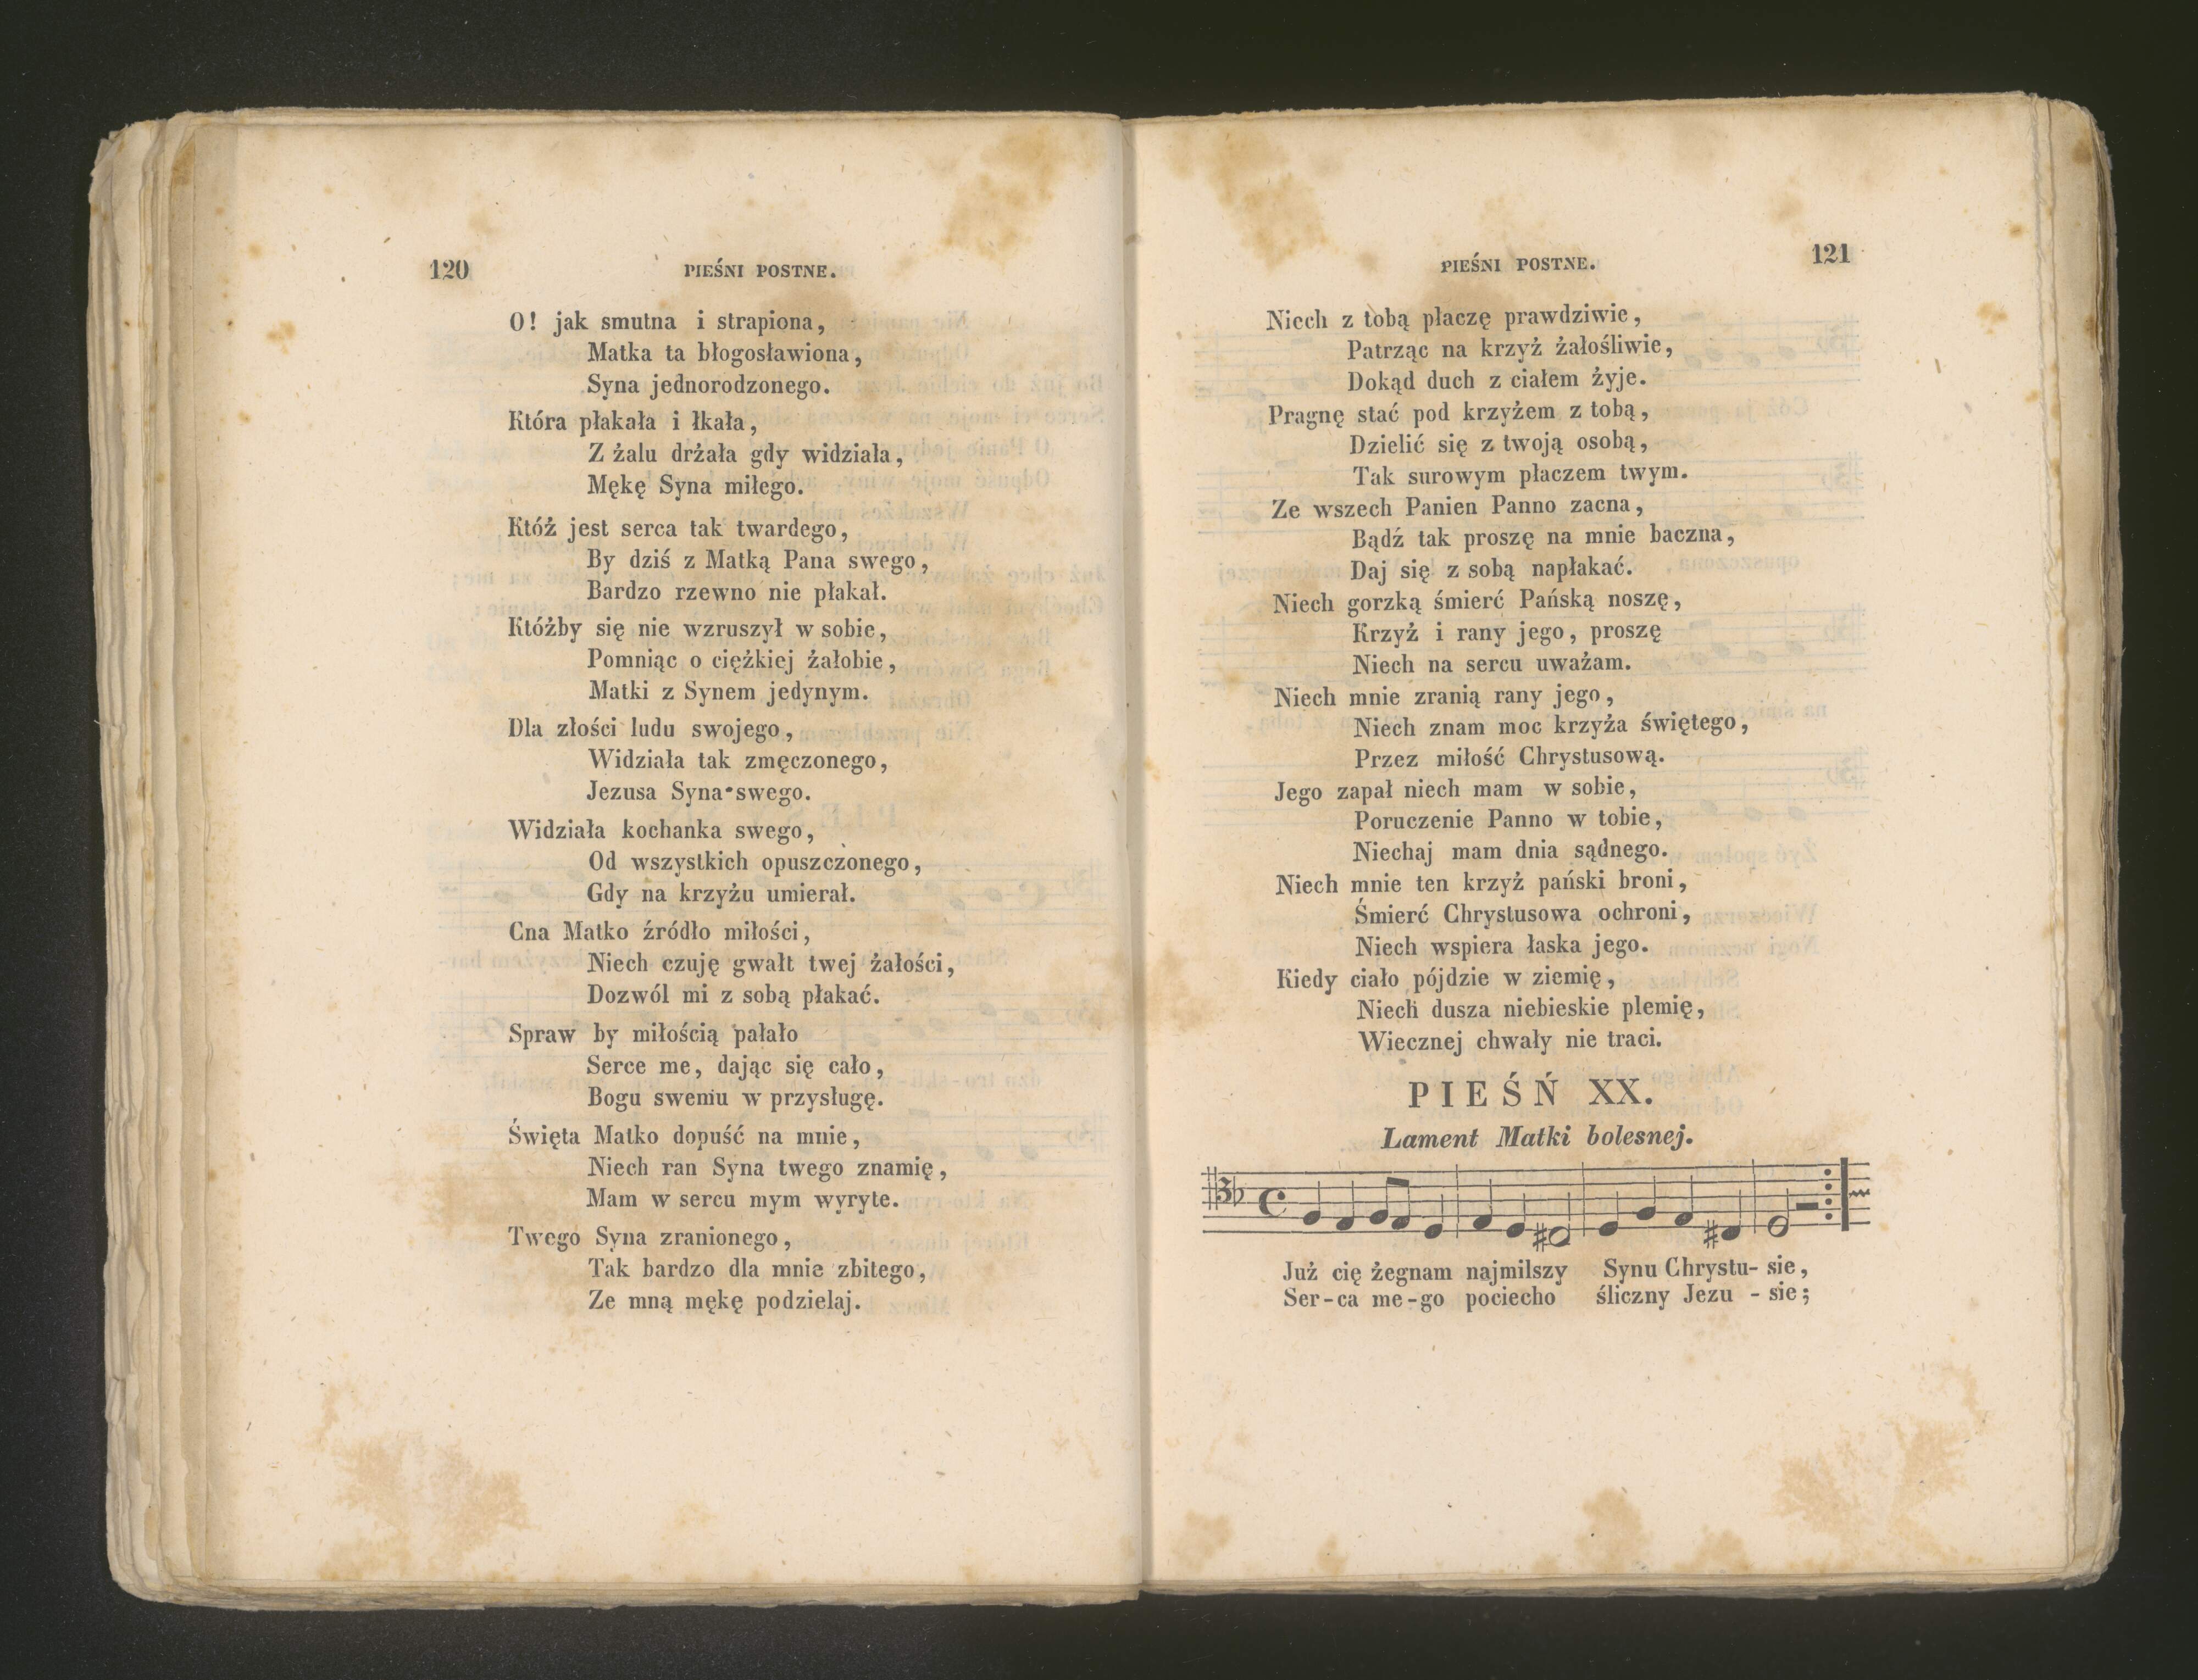 120
PIEŚNI POSTNE.
O! jak smutna i strapiona,
Matka ta błogosławiona,
Syna jednorodzonego.
Która płakała i łkała,
Z żalu drżała gdy widziała,
Mękę Syna miłego.
Któż jest serca tak twardego,
By dziś z Matką Pana swego,
Bardzo rzewno nie płakał.
Któżby się nie wzruszył w sobie,
Pomniąc o ciężkiej żałobie,
Matki z Synem jedynym.
Dla złości ludu swojego,
Widziała tak zmęczonego,
Jezusa Syna swego.
Widziała kochanka swego,
Od wszystkich opuszczonego,
Gdy na krzyżu umierał.
Cna Matko źródło miłości,
Niech czuję gwałt twej żałości,
Dozwól mi z sobą płakać.
Spraw by miłością pałało
Serce me, dając się cało,
Bogu swemu w przysługę.
Święta Matko dopuść na mnie,
Niech ran Syna twego znamię,
Mam w sercu mym wyryte.
Twego Syna zranionego,
Tak bardzo dla mnie zbitego,
Ze mną mękę podzielaj.
PIEŚNI POSTNE.
121
Niech z tobą płaczę prawdziwie,
Patrząc na krzyż żałośliwie,
Dokąd duch z ciałem żyje.
Pragnę stać pod krzyżem z tobą,
Dzielić się z twoją osobą,
Tak surowym płaczem twym.
Ze wszech Panien Panno zacna,
Bądź tak proszę na mnie baczna,
Daj się z sobą napłakać.
Niech gorzką śmierć Pańską noszę,
Krzyż i rany jego, proszę
Niech na sercu uważam.
Niech mnie zranią rany jego,
Niech znam moc krzyża świętego,
Przez miłość Chrystusową.
Jego zapał niech mam w sobie,
Poruczenie Panno w tobie,
Niechaj mam dnia sądnego.
Niech mnie ten krzyż pański broni,
Śmierć Chrystusowa ochroni,
Niech wspiera łaska jego.
Kiedy ciało pójdzie w ziemię,
Niech dusza niebieskie plemię,
Wiecznej chwały nie traci.
PIEŚŃ XX.
Lament Matki bolesnej.
Już cię żegnam najmilszy Synu Chrystu- sie,
Ser-ca me-go pociecho śliczny Jezu - sie;